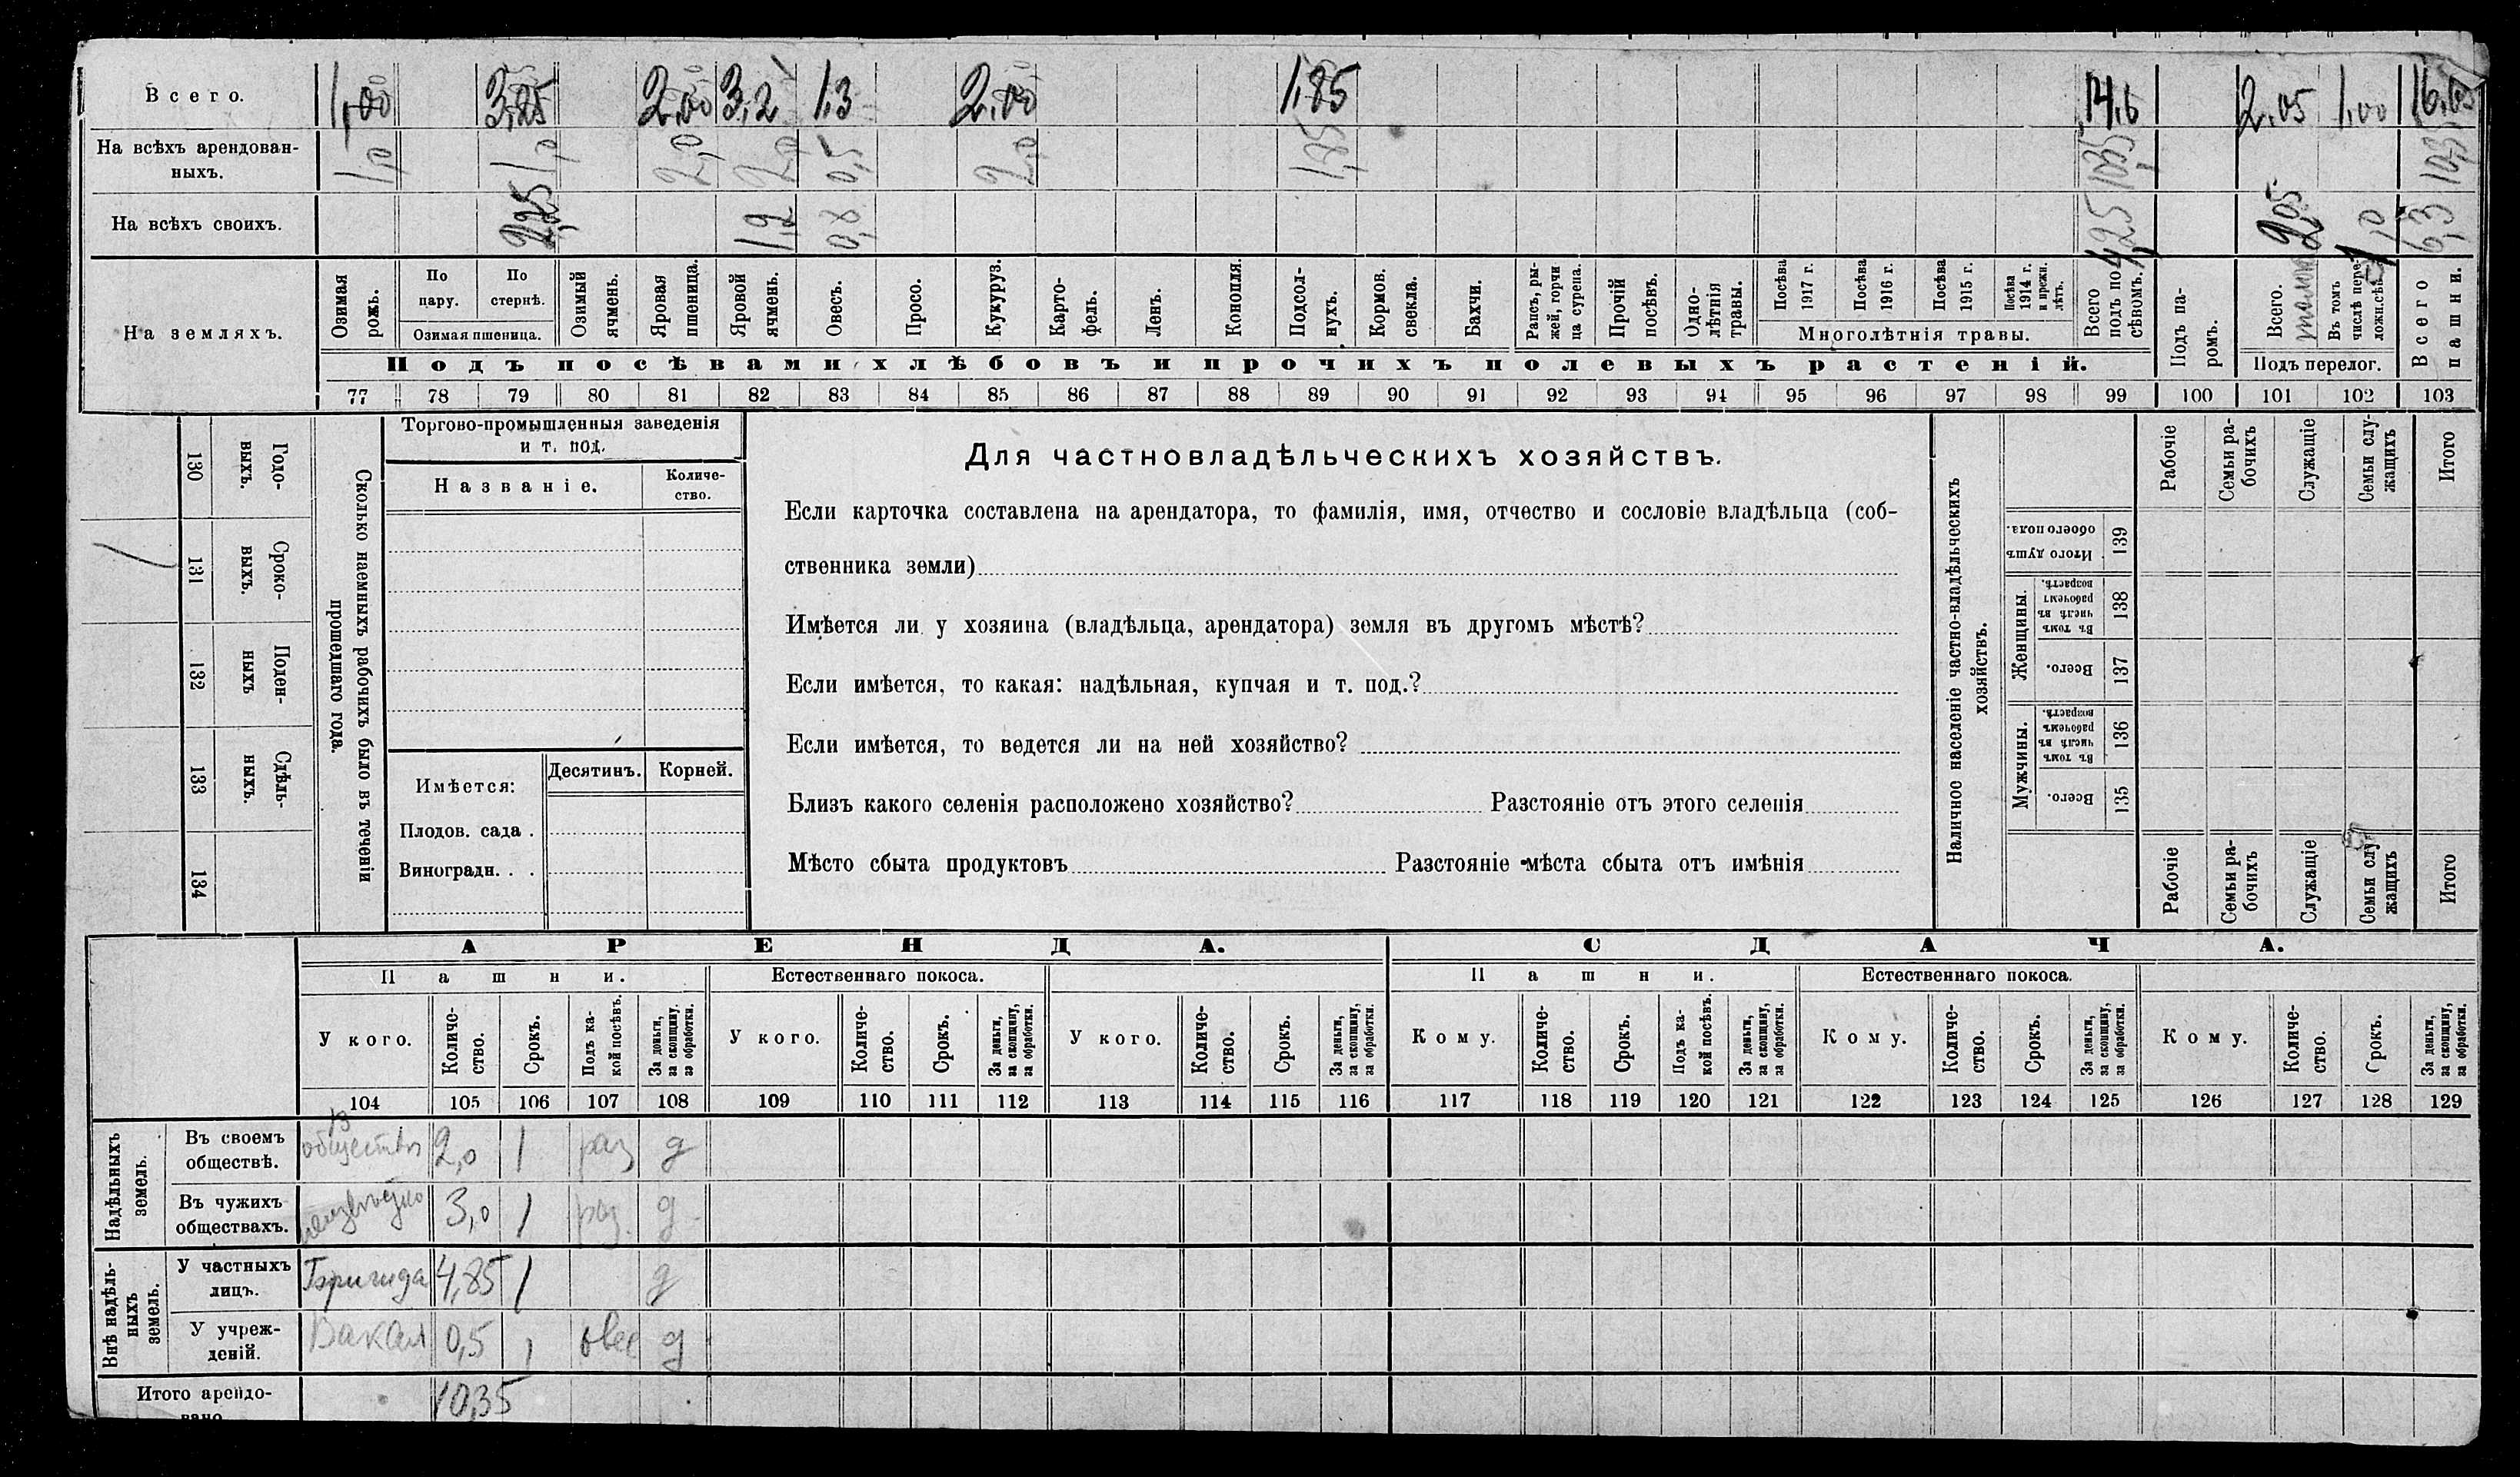 Всего. 1,00 3,25 2,00 3,2 1,3 2,00 1,85 14,6 2,05 1,00 16,65
На всѣхъ арендован-
ныхъ. 1,0 1,0 2,0 2,0 0,5 2,0 1,85 10,35 10,35
На всѣхъ своихъ. 2,25 1,2 0,8 4,25 2,05 1,0 6,3
На земляхъ.
Озимая рожь.
По пару.
По стернѣ.
Озимая пшеница.
Озимый ячмень.
Яровая пшеница.
Яровой ячмень.
Овесъ.
Просо.
Кукуруз.
Карто-
фель.
Ленъ.
Конопля.
Подсол-
нухъ.
Кормов. свекла.
Бахчи.
Рапсъ, ры-
жей, горчи
ца сурепа.
Прочій посѣвъ.
Одно-
лѣтнія травы.
Посѣва 1917 г.
Посѣва 1916 г.
Посѣва 1915 г.
Посѣва 1914 г. и прежн. лѣтъ.
Многолѣтнія травы.
Всего подъ по-
сѣвомъ.
Подъ па-
ромъ.
Всего.
Въ томъ числѣ пере-
ложн. сѣн.
Подъ перелог.
Всего пашни.
Подъ посѣвами хлѣбовъ и прочихъ полевыхъ растеній.
77 78 79 80 81 82 83 84 85 86 87 88 89 90 91 92 93 94 95 96 97 98 99 100 101 102 103
130 Годо-
выхъ.
131 Сроко-
выхъ.
132 Поден-
ныхъ
133 Сдѣль-
ныхъ.
134
Сколько наемныхъ рабочихъ было въ теченіи
прошедшаго года.
Торгово-промышленныя заведенія
и т. под.
Названіе.
Количе-
ство.
Имѣется:
Десятинъ.
Корней.
Плодов. сада .
Виноградн. . .
Для частновладѣльческихъ хозяйствъ.
Если карточка составлена на арендатора, то фамилія, имя, отчество и сословіе владѣльца (соб-
ственника земли)
Имѣется ли у хозяина (владѣльца, арендатора) земля въ другомъ мѣстѣ?
Если имѣется, то какая: надѣльная, купчая и т. под.?
Если имѣется, то ведется ли на ней хозяйство?
Близъ какого селенія расположено хозяйство? Разстояніе отъ этого селенія
Мѣсто сбыта продуктовъ Разстояніе мѣста сбыта отъ имѣнія
Наличное населеніе частно-владѣльческихъ
хозяйствъ.
Рабочіе
Семьи ра-
бочихъ
Служащіе
Семьи слу-
жащихъ
Итого
139 Итого душъ обоего пола.
Женщины.
138 Въ томъ числѣ въ рабочемъ возрастѣ.
137 Всего.
Мужчины.
136 Въ томъ числѣ въ рабочемъ возрастѣ.
135 Всего.
Рабочіе
Семьи ра-
бочихъ
Служащіе
Семьи слу-
жащихъ
Итого
АРЕНДА. СДАЧА.
Пашни. Естественнаго покоса. Пашни. Естественнаго покоса.
У кого. Количе-
ство. Срокъ. Подъ ка-
кой посѣвъ. За деньги, за скопщину, за обработки.
У кого. Количе-
ство. Срокъ. За деньги, за скопщину, за обработки.
У кого. Количе-
ство. Срокъ. За деньги, за скопщину, за обработки.
Кому. Количе-
ство. Срокъ. Подъ ка-
кой посѣвъ. За деньги, за скопщину, за обработки.
Кому. Количе-
ство. Срокъ. За деньги, за скопщину, за обработки.
Кому. Количе-
ство. Срокъ. За деньги, за скопщину, за обработки.
104 105 106 107 108 109 110 111 112 113 114 115 116 117 118 119 120 121 122 123 124 125 126 127 128 129
Надѣльныхъ земель.
Въ своемъ
обществѣ. 2,0 1 раз д
Въ чужихъ
обществахъ. 3,0 1 раз. д
Внѣ надѣль-
ныхъ земель.
У частныхъ
лицъ. 4,85 1 д
У учреж-
деній. Вакал 0,5 1 овес д
Итого арендо-
вано 10,35